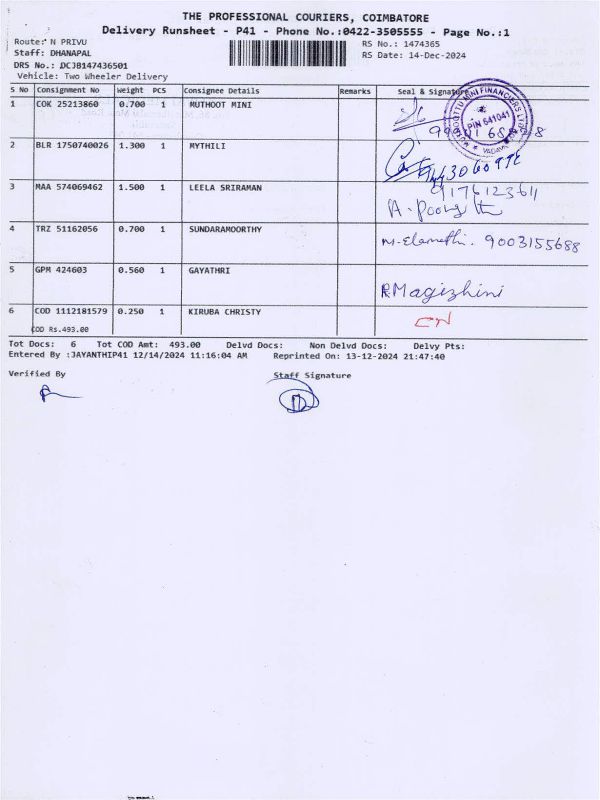 THE PROFESSIONAL COURIERS, COIMBATORE
Delivery Runsheet - P41 - Phone No.:0422-3505555 - Page No.:1
Route: N PRIVU RS No.: 1474365
Staff: DHANAPAL RS Date: 14-Dec-2024
DRS No.: DCJB147436501
Vehicle: Two Wheeler Delivery
S No Consignment No Weight PCS Consignee Details Remarks Seal & Signature
1 COK 25213860 0.700 1 MUTHOOT MINI
PIN 641041
2 BLR 1750740026 1.300 1 MYTHILI
3 MAA 574069462 1.500 1 LEELA SRIRAMAN
9176123611
4 TRZ 51162056 0.700 1 SUNDARAMOORTHY
M. Elamathi. 9003155688
5 GPM 424603 0.560 1 GAYATHRI
R Magizhini
6 COD 1112181579 0.250 1 KIRUBA CHRISTY
COD Rs.493.00
Tot Docs: 6 Tot COD Amt: 493.00 Delvd Docs: Non Delvd Docs: Delvy Pts:
Entered By :JAYANTHIP41 12/14/2024 11:16:04 AM Reprinted On: 13-12-2024 21:47:40
Verified By Staff Signature